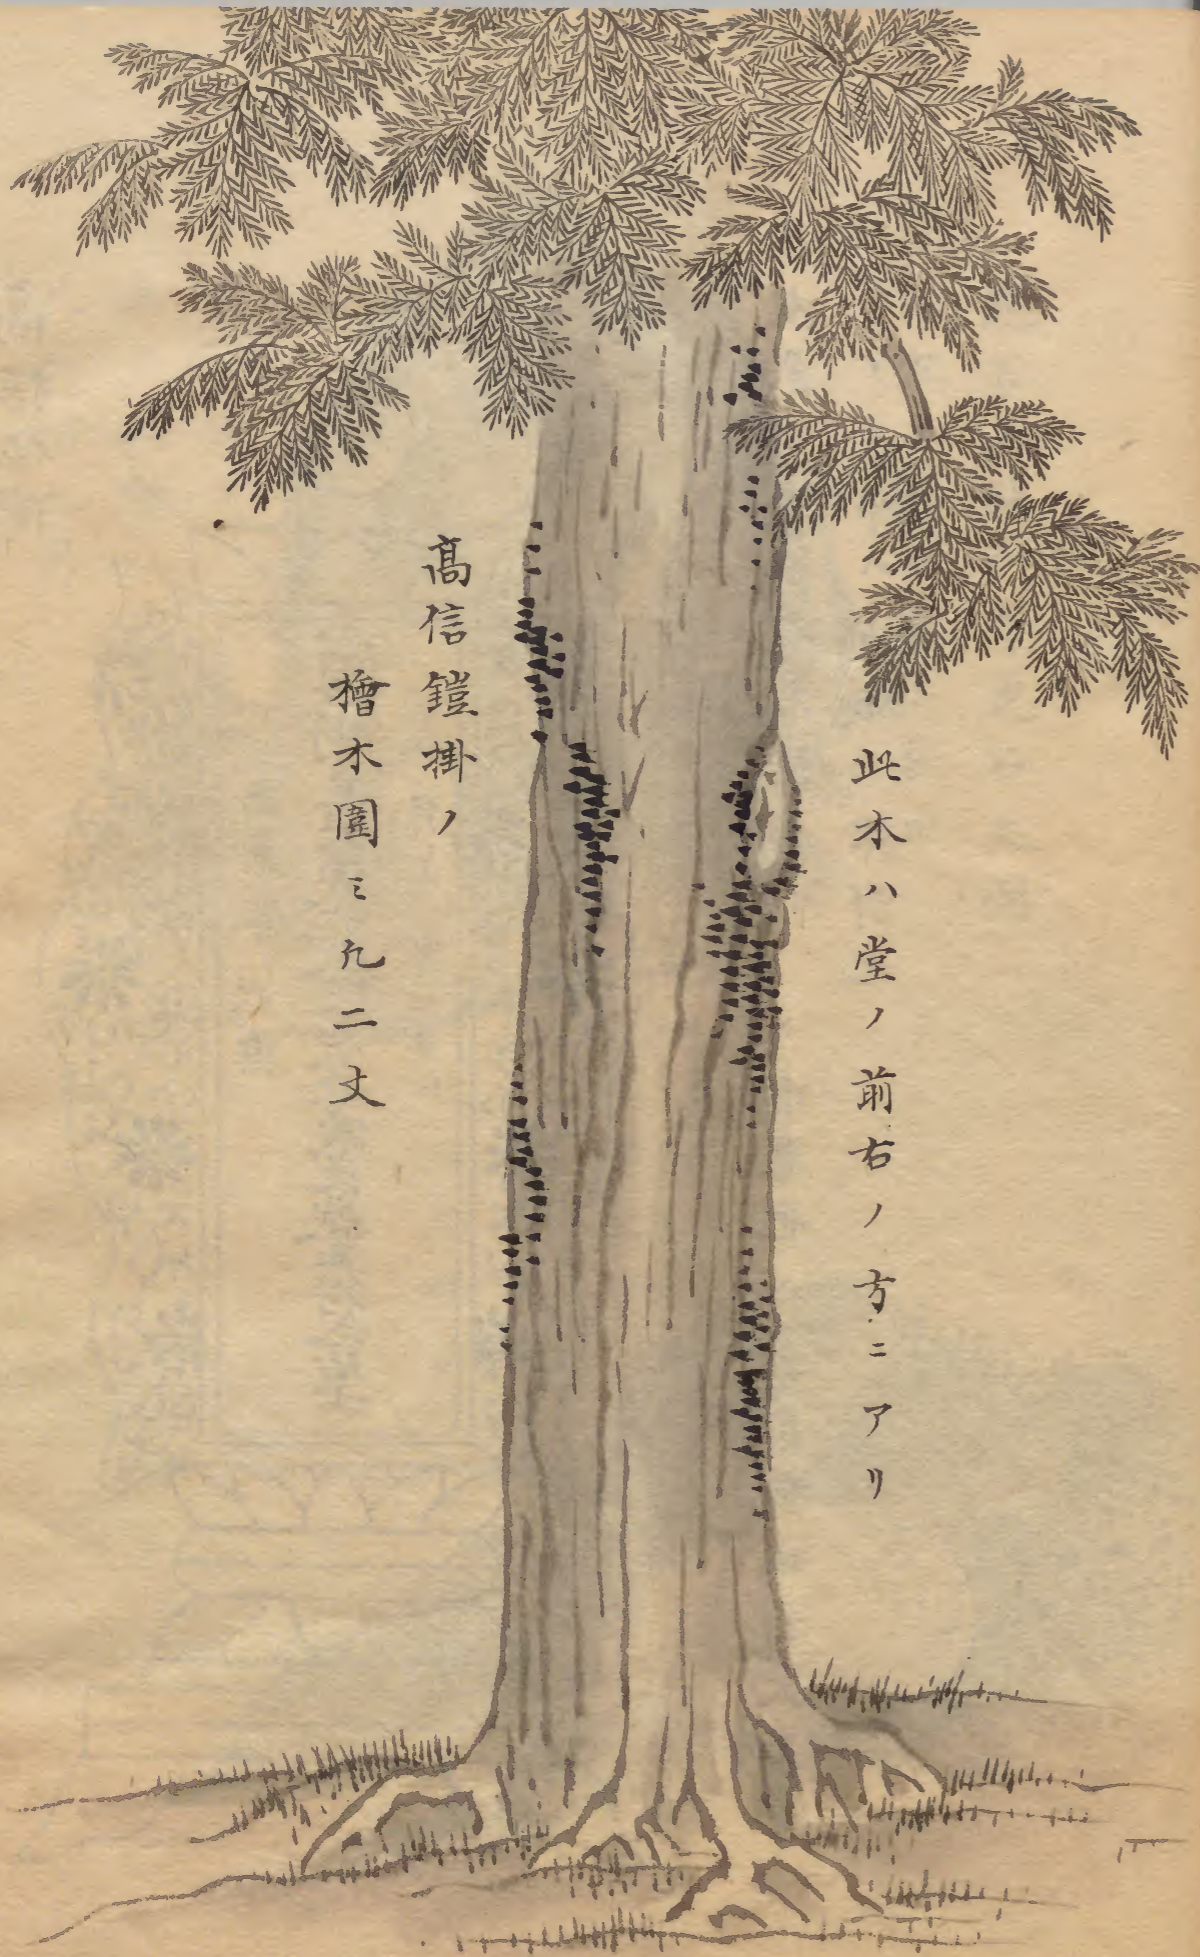 此木ハ堂ノ前右ノ方ニアリ
高信鎧掛ノ
檜木圍ミ凢二丈